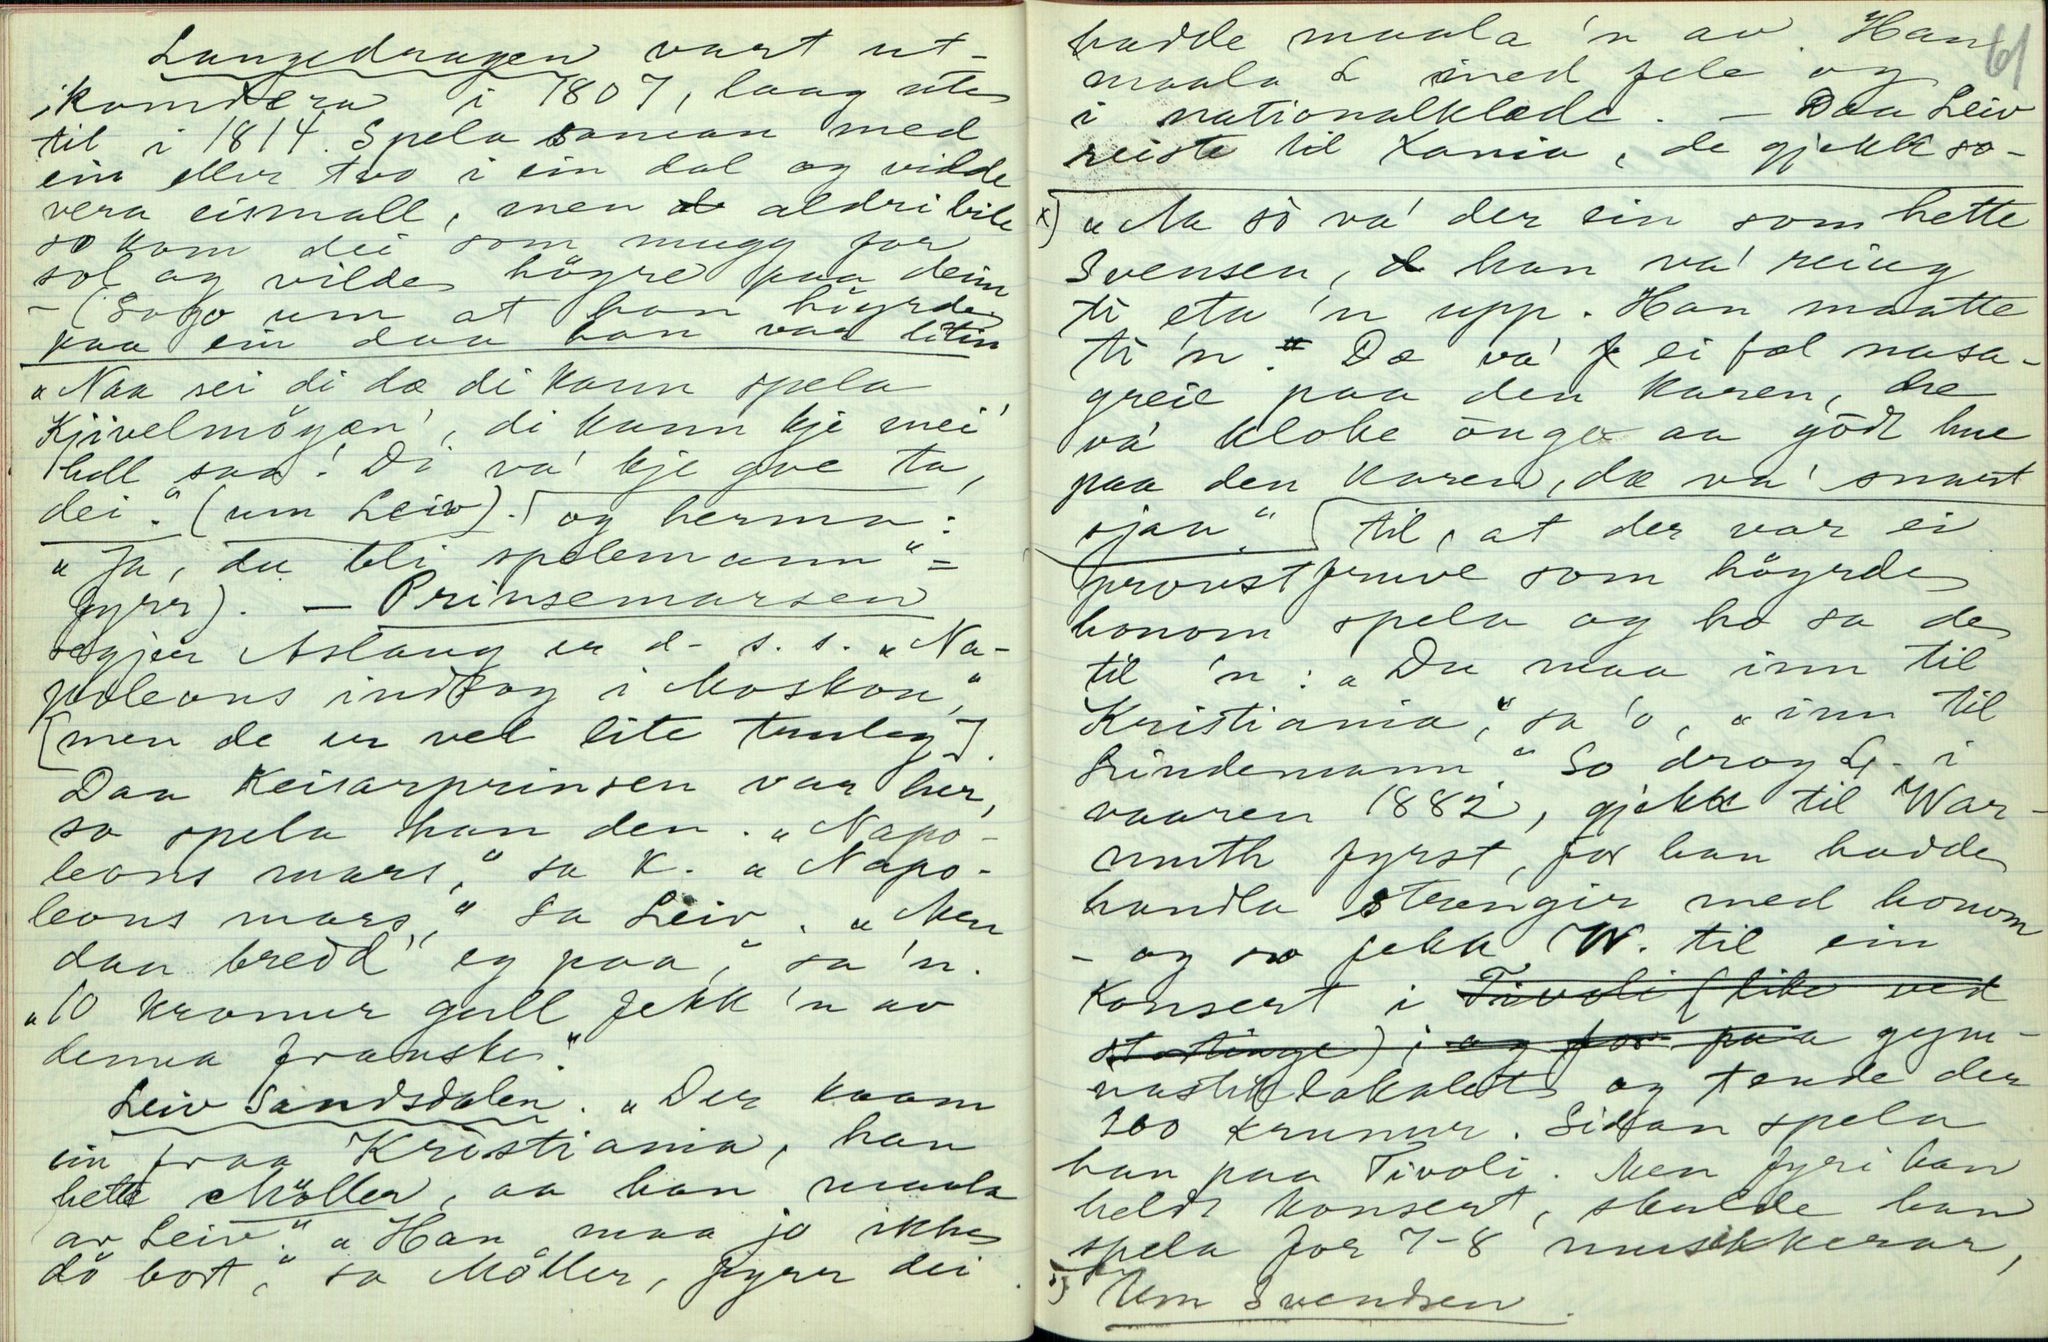 Langedragen vart ut-
kommdera i 1807, laag ute
til i 1814. Spela saman med
ein eller tvo i ein dal og vilde
vera eismall, men aldri bite
so kom dei som mugg for
sol og vilde höyre paa deim
- (Sogo um at han höyrde
paa ein daa han var litin
"Naa sei di dæ di kann spela
Kjivelmöyæn', di kann kje mei'
hell saa! Di va' kje gve ta,
dei." (um Leiv). og herma:
"Ja, du bli spelemann" =
fyrr). — Prinsemarsen
segjer Aslaug er d. s. s. "Na-
poleons indtog i Moskou,"
[men de er vel lite truleg].
Daa Keisarprinsen var her,
so spela han den. "Napo-
leons mars," sa K. "Napo-
leons mars," sa Leiv. "Men
daa bredd' eg paa," sa 'n.
"10 kronur gull fekk 'n av
denna franske."
Leiv Sandsdalen. "Der kaam
ein fraa Kristiania, han
hette Möller, aa han maala
av Leiv." "Han maa jo ikke
dö bort," sa Möller, fyrr dei
61
hadde maala 'n av. Han
maala L med fele og
i nationalklæde. — Daa Leiv
reiste til Xania, de gjekk so-
x) "Na sò va' der ein som hette
Svensen, han va' reiug
ti eta 'n upp. Han maatte
ti 'n. Dæ va' ei fæl nasa-
greie paa den karen, dæ
va' kloke önge aa gödt hue
paa den karen, dæ va' snart
sjaa." til, at der var ei
proustfruve som höyrde
honom spela og ho sa de
til 'n: "Du maa inn til
Kristiania," sa 'o, "inn til
Lindemann." So drog L. i
vaaren 1882, gjekk til War-
muth fyrst, for han hadde
handla strengir med honom
- og so fekk W. til ein
Konsert i Tivoli (like ved
stortinge) i og for paa gym-
nastikklokalet og tende der
200 krunur. Sidan spela
han paa Tivoli. Men fyri han
heldt konsert, skulde han
spela for 7-8 musikkerar,
x) Um Svendsen.